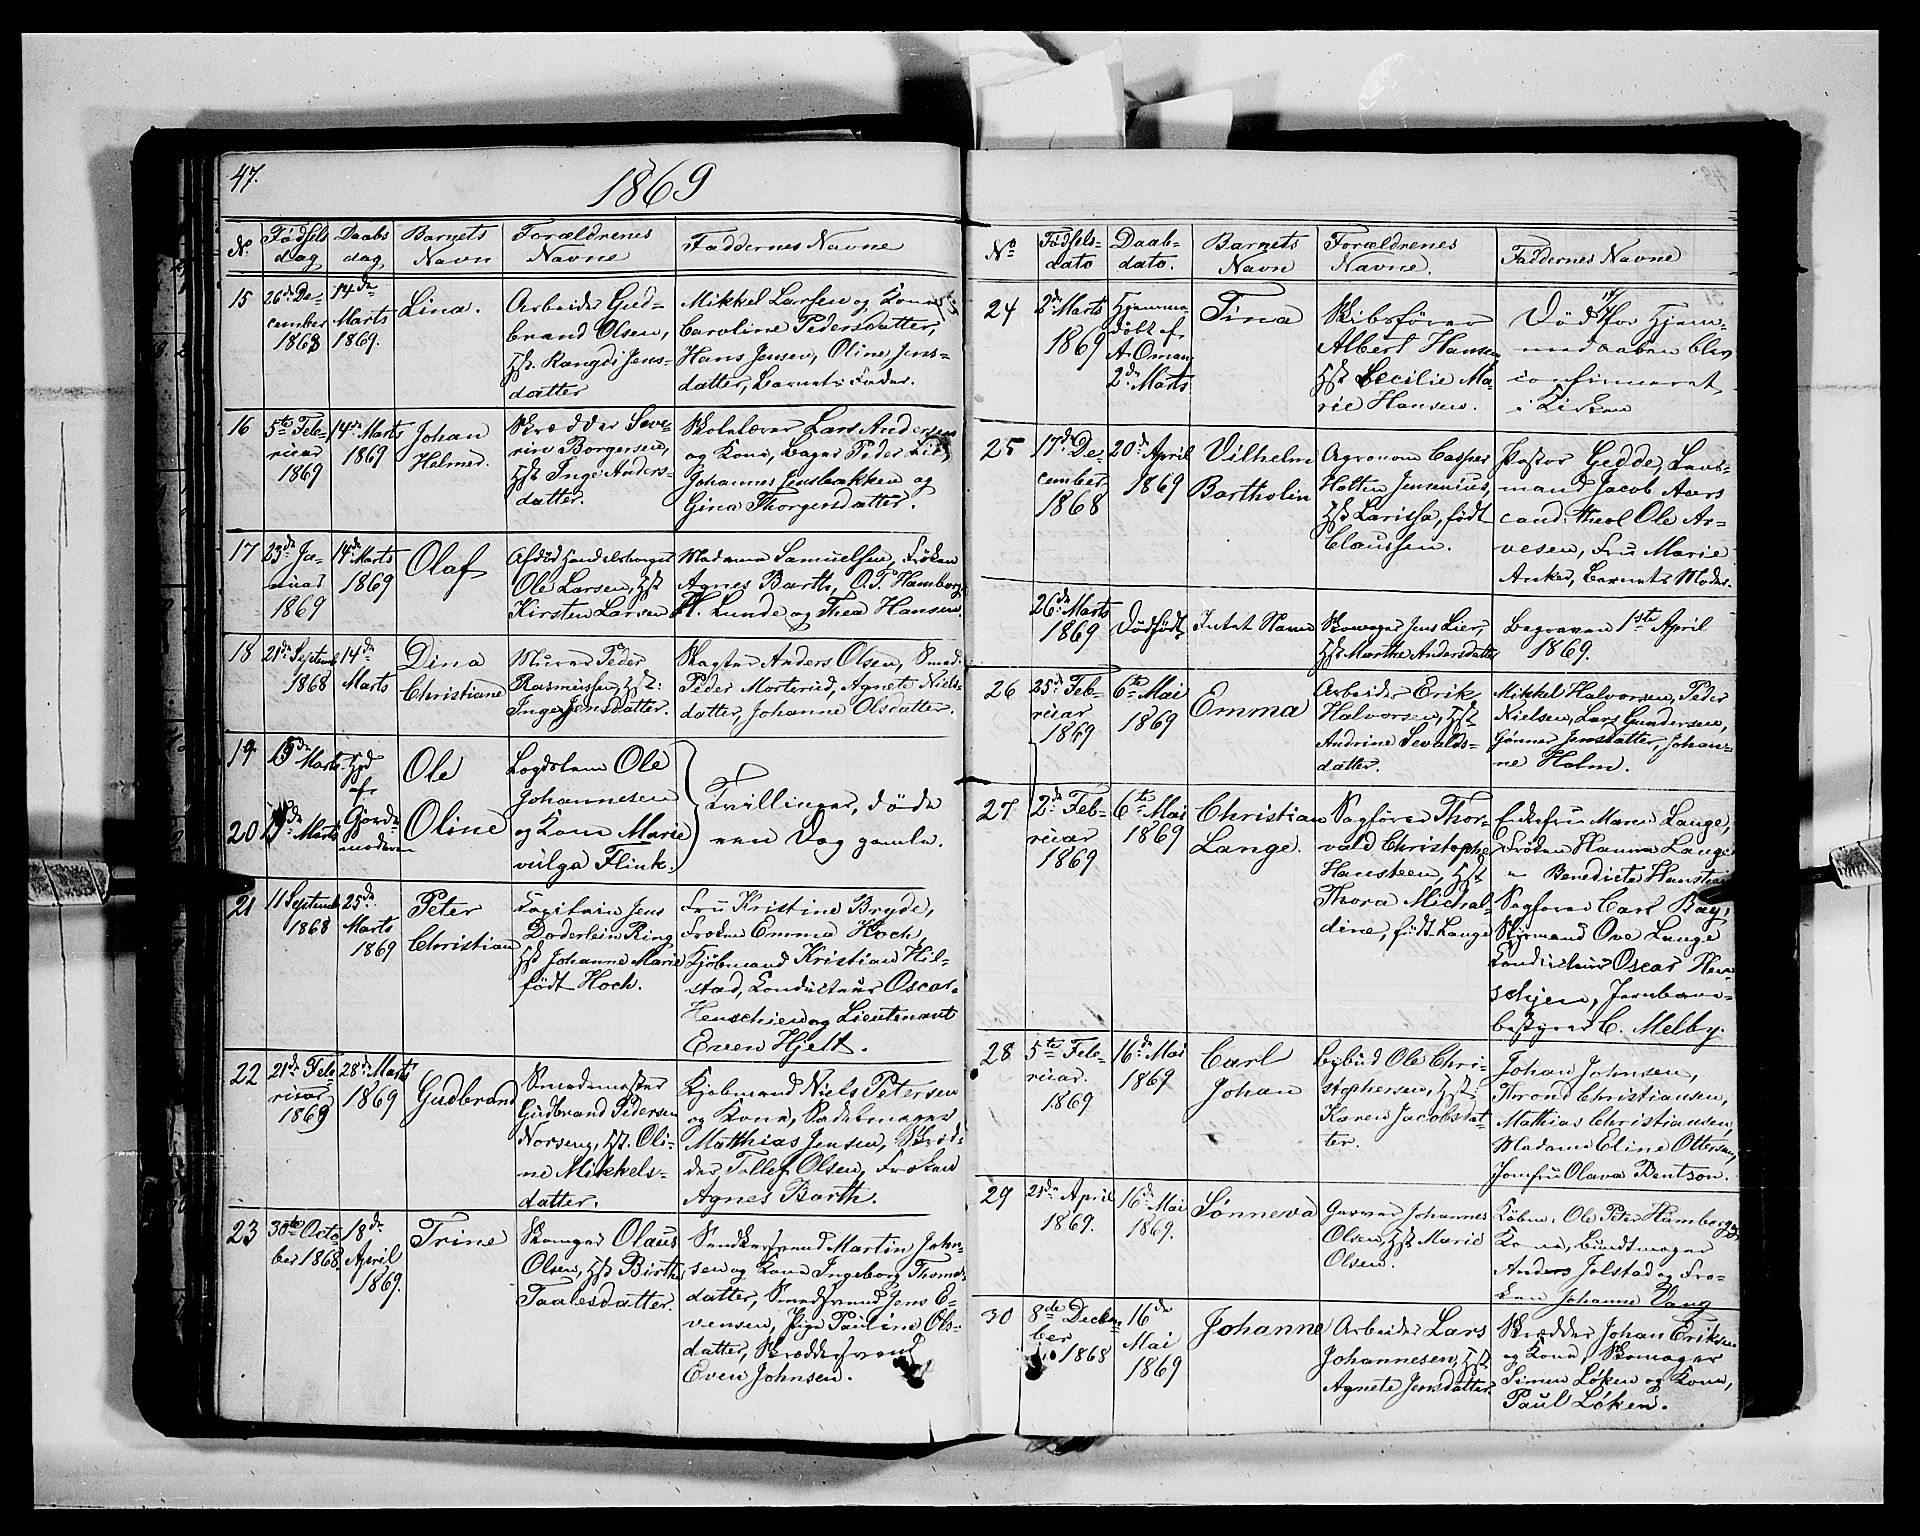 47.
1869
N. Fødsels dag Daabs dag Barnets Navn Forældrenes Navne Faddernes Navne
15 26de December 1868 14de Marts 1869. Lina.
Arbeider Gud-
brand Olsen,
Hst. Rangdi Jens-
datter
Mikkel Larsen og Kone
Caroline Pedersdatter,
Hans Jensen, Oline Jens-
datter, Barnets Fader.
16 5te Februar 1869 14de Marts 1869 Johan Helmer.
Skrædder Seve-
rin Borgersen,
Hst Inge Anders-
datter.
Skolelærer Lars Andersen
og Kone, Bager Peder Lie,
Johannes Jensbakken og
Gina Thorgersdatter.
17 23de Januar 1869 14de Marts 1869 Olaf
Afdød Handelsborger
Ole Larsen, Hst
Kirsten Larsen
Madame Samuelsen, Frøken
Agnes Barth, O.P. Hamborg,
H. Lunde og Thea Hansen.
18 21de Septemb 1868 14de Marts Dina Christiane
Murer Peder
Rasmussen, Hst:
Inge Jensdatter.
Anders Olsen, Smed
Peder Morterud, Agnete Niels-
datter, Johanne Olsdatter.
19 Marts Hjd af Ole
20 Marts Gjorde-
moderen Oline
Logslem Ole
Johannesen
og Kone Marie
vulga Flink.
Tvillinger, døde
een Dag gamle.
21 11 Septemb 1868 25de Marts 1869 Peter Christian
Capitain Jens
Doderlein Ring
Hst Johanne Marie
født Hoch.
Fru Kristine Bryde,
Frøken Emma Hoch,
Kjøbmand Kristian Hil-
stad, Conducteur Oscar
Henschien og Lieutenant
Even Hjelt.
22 21de Februar 1869 28de Marts 1869 Gudbrand
Smedemester
Gudbrand Pedersen
Norseng, Hst. Oli-
ne Mikkels-
datter.
Kjøbmand Niels Petersen
og Kone, Sadelmager
Matthias Jensen, Skræd-
der Tollef Olsen, Frøken
Agnes Barth.
23 30te October 1868. 18de April 1869. Trine
Skomager Olaus
Olsen, Hst Birthe
Taalesdatter.
Snedkersvend Martin John-
sen og Kone Ingeborg Thomas-
datter, Smedsvend Jens E-
vensen, Pige Pauline Ols-
datter, Skræddersvend
Even Johnsen.
No Fødsels-
dato Daab-
dato. Barnets Navn Forældrenes Navne. Faddernes Navne
24 2de Marts 1869 Hjemme-
døbt af
A. Oman
2de Marts Tina
Skibsfører
Albert Hansen
Hst Cecilie Ma-
rie Hansen.
Død før Hjem-
medaaben blev
confirmeret
i Kirken
25 17de December 1868 20de April 1869 Vilhelm Bartholin
Agronom Casper
Holten Jensenius,
Hst Larissa, født
Claussen.
Pastor Gedde, Lens-
mand Jacob Aars
cand: theol Ole Ar-
vesen, Fru Marie
Anker, Barnets Moder.
26de Marts 1869 Dødfødt Intet Navn
Skomager Jens Lier,
Hst Marthe Andersdatter
Begraven 1ste April
1869.
26 25de Februar 1869 6te Mai 1869 Emma
Arbeider Erik
Halvorsen, Hst
Andrine Sevalds-
datter.
Mikkel Halvorsen, Peder
Nielsen, Lars Gundersen,
Gunner Jensdatter, Johan-
ne Holm.
27 2de Februar 1869 6te Mai 1869 Christian Lange.
Sagfører Thor-
vald Christopher
Hansteen, Hst
Thora Michal-
dine, født Lange
Enkefru Maren Lange,
Frøken Hanna Lange
" Benedicte Hansteen
Sagfører Carl Bay,
Styrmand Ove Lange
Conducteur Oscar Hen-
schien, Jernbane-
bestyrer C. Melby.
28 5te Februar. 1869 16de Mai 1869 Carl Johan
Lybud Ole Chri-
stophersen, Hst:
Karen Jacobsdat-
ter.
Johan Johnsen,
Thrond Christiansen,
Mathias Christiansen,
Madame Eline Ottersen,
Jomfru Olava Bentson.
29 21de April 1869. 16de Mai 1869. Sønneva
Garver Johannes
Olsen, Hst Marie
Olsen.
Købm. Ole Peter Hamborg og
Kone, Bundtmager
Anders Jolstad og Frø-
ken Johanne Vang
30 8de December 1868 16de Mai 1869 Johanne
Arbeider Lars
Johannesen, Hst
Agnete Jensdatter.
Skrædder Johan Eriksen
og Kone, Skomager
Simen Løken og Kone,
Paul Løken.